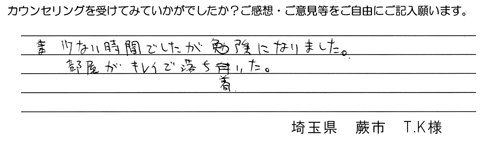 カウンセリングを受けてみていかがでしたか？ご感想・ご意見等をご自由にご記入願います。
少ない時間でしたが勉強になりました。
部屋がキレイで落ち着いた。
埼玉県　蕨市　T.K様